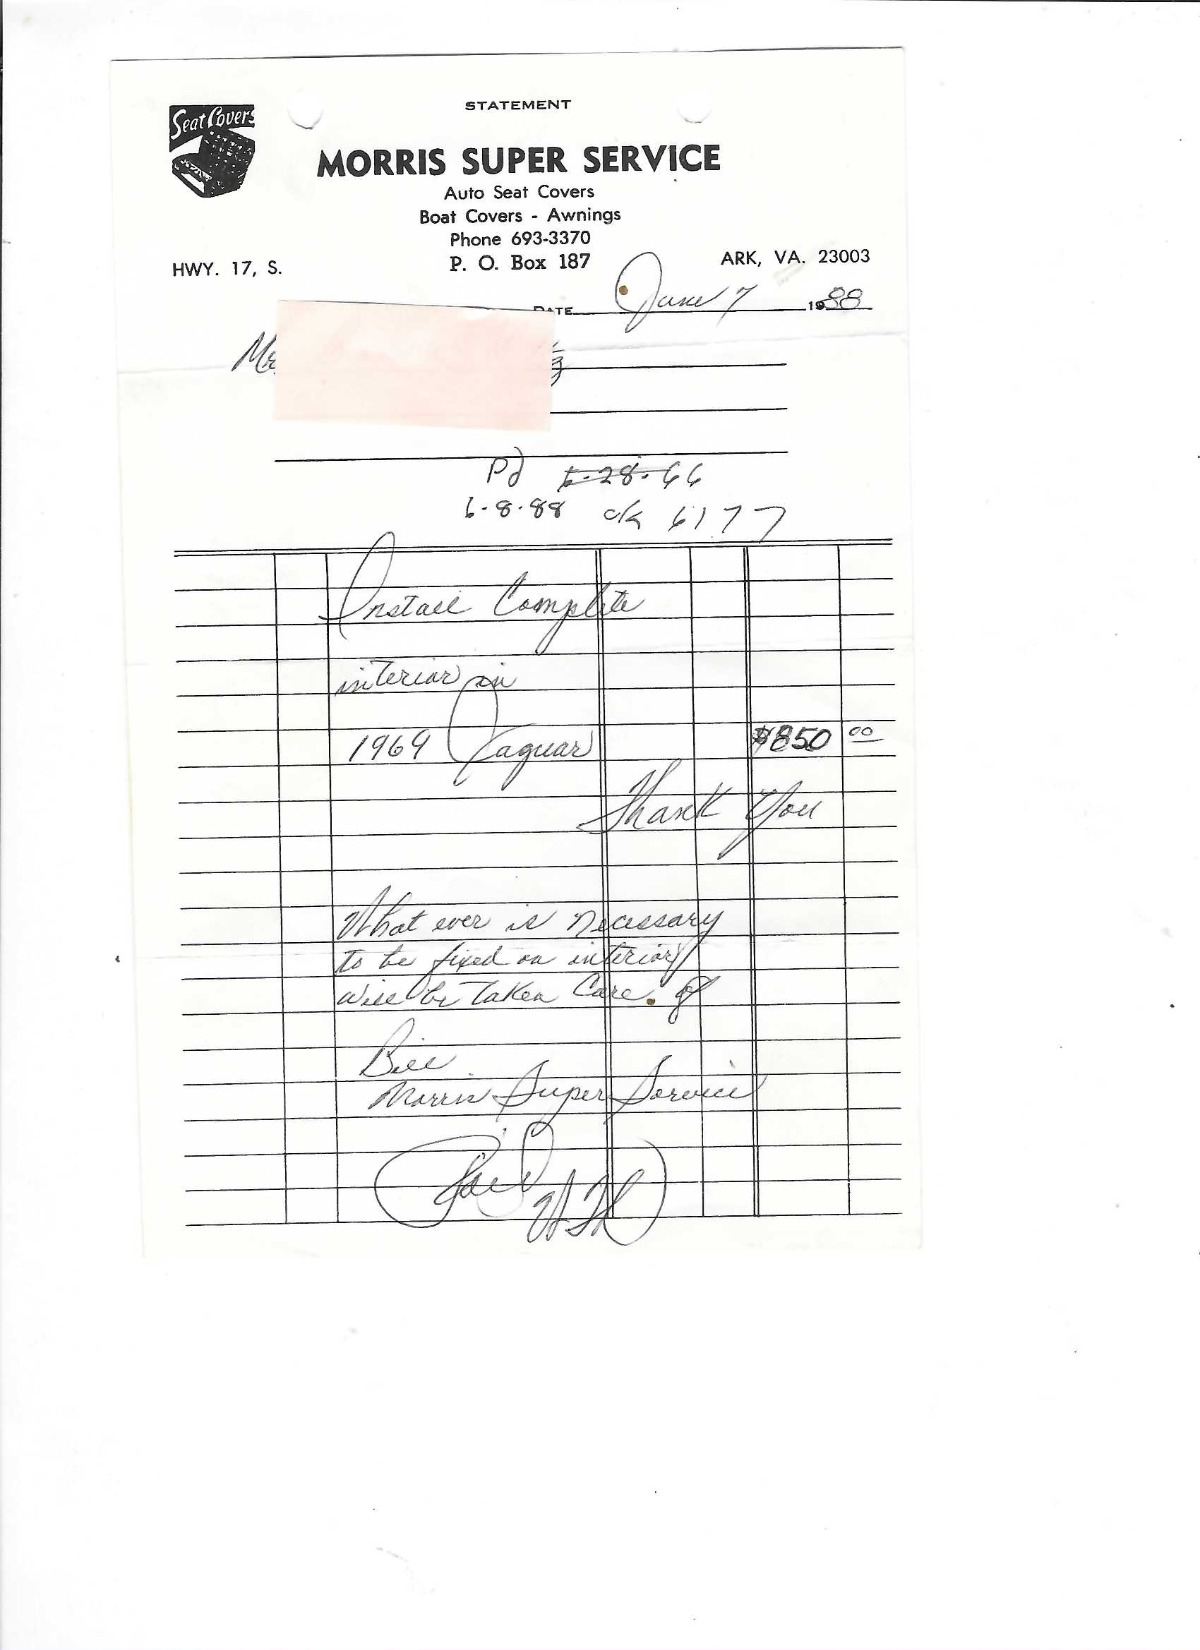 Seat Covers
STATEMENT
MORRIS SUPER SERVICE
Auto Seat Covers
Boat Covers - Awnings
Phone 693-3370
HWY. 17, S.
P. O. Box 187
ARK, VA. 23003
DATE June 7 1988
Mr
Pd 6-28-66
6-8-88 ck 6177
Install Complete
interior in
1969 Jaguar $850 00
Thank You
What ever is necessary
to be fixed on interior
will be taken Care. of
Bill
Morris Super Service
Paid